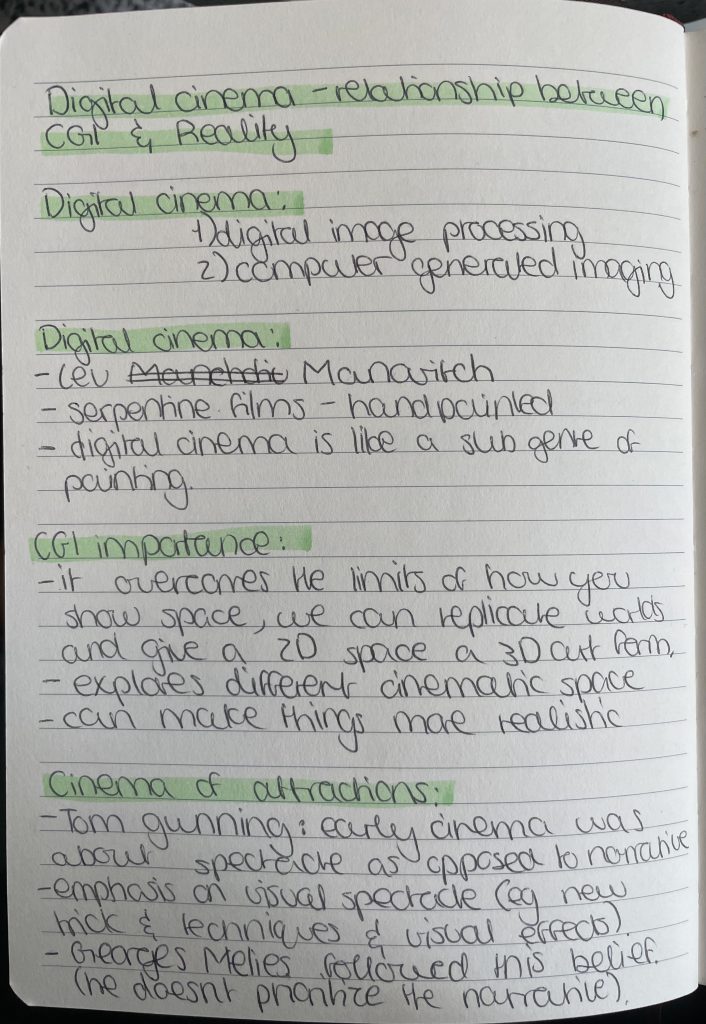 Digital cinema - relationship between
CGI & Reality
Digital cinema:
1) digital image processing
2) computer generated imaging
Digital cinema:
- Lev Manavitch
- serpentine films - handpainted
- digital cinema is like a sub genre of
painting.
CGI importance:
- it overcomes the limits of how you
show space, we can replicate worlds
and give a 2D space a 3D art form,
- explores different cinematic space
- can make things more realistic
Cinema of attractions:
- Tom gunning: early cinema was
about spectacle as opposed to narrative
- emphasis on visual spectacle (eg new
trick & techniques & visual effects).
- Georges Melies followed this belief.
(he doesnt prioritize the narrative).